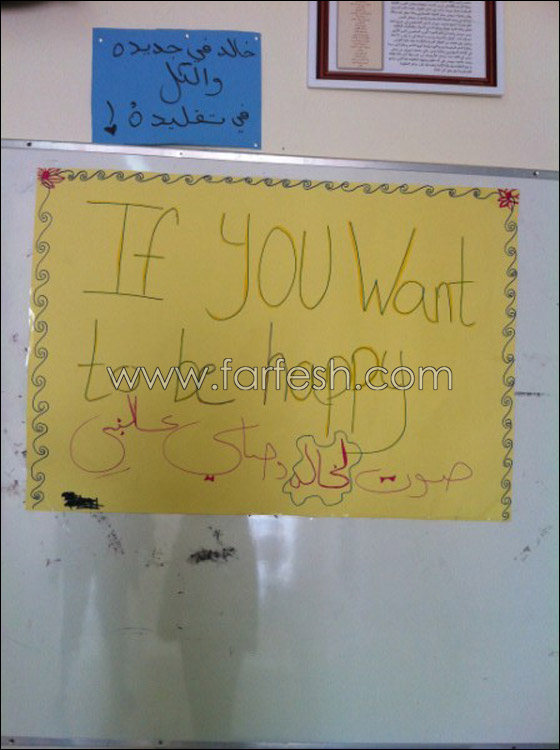 خالد في جديده
والكل
في تقليده !
If you want
to be happy
www.farfesh.com
صوت لخالد وصلي عالنبي